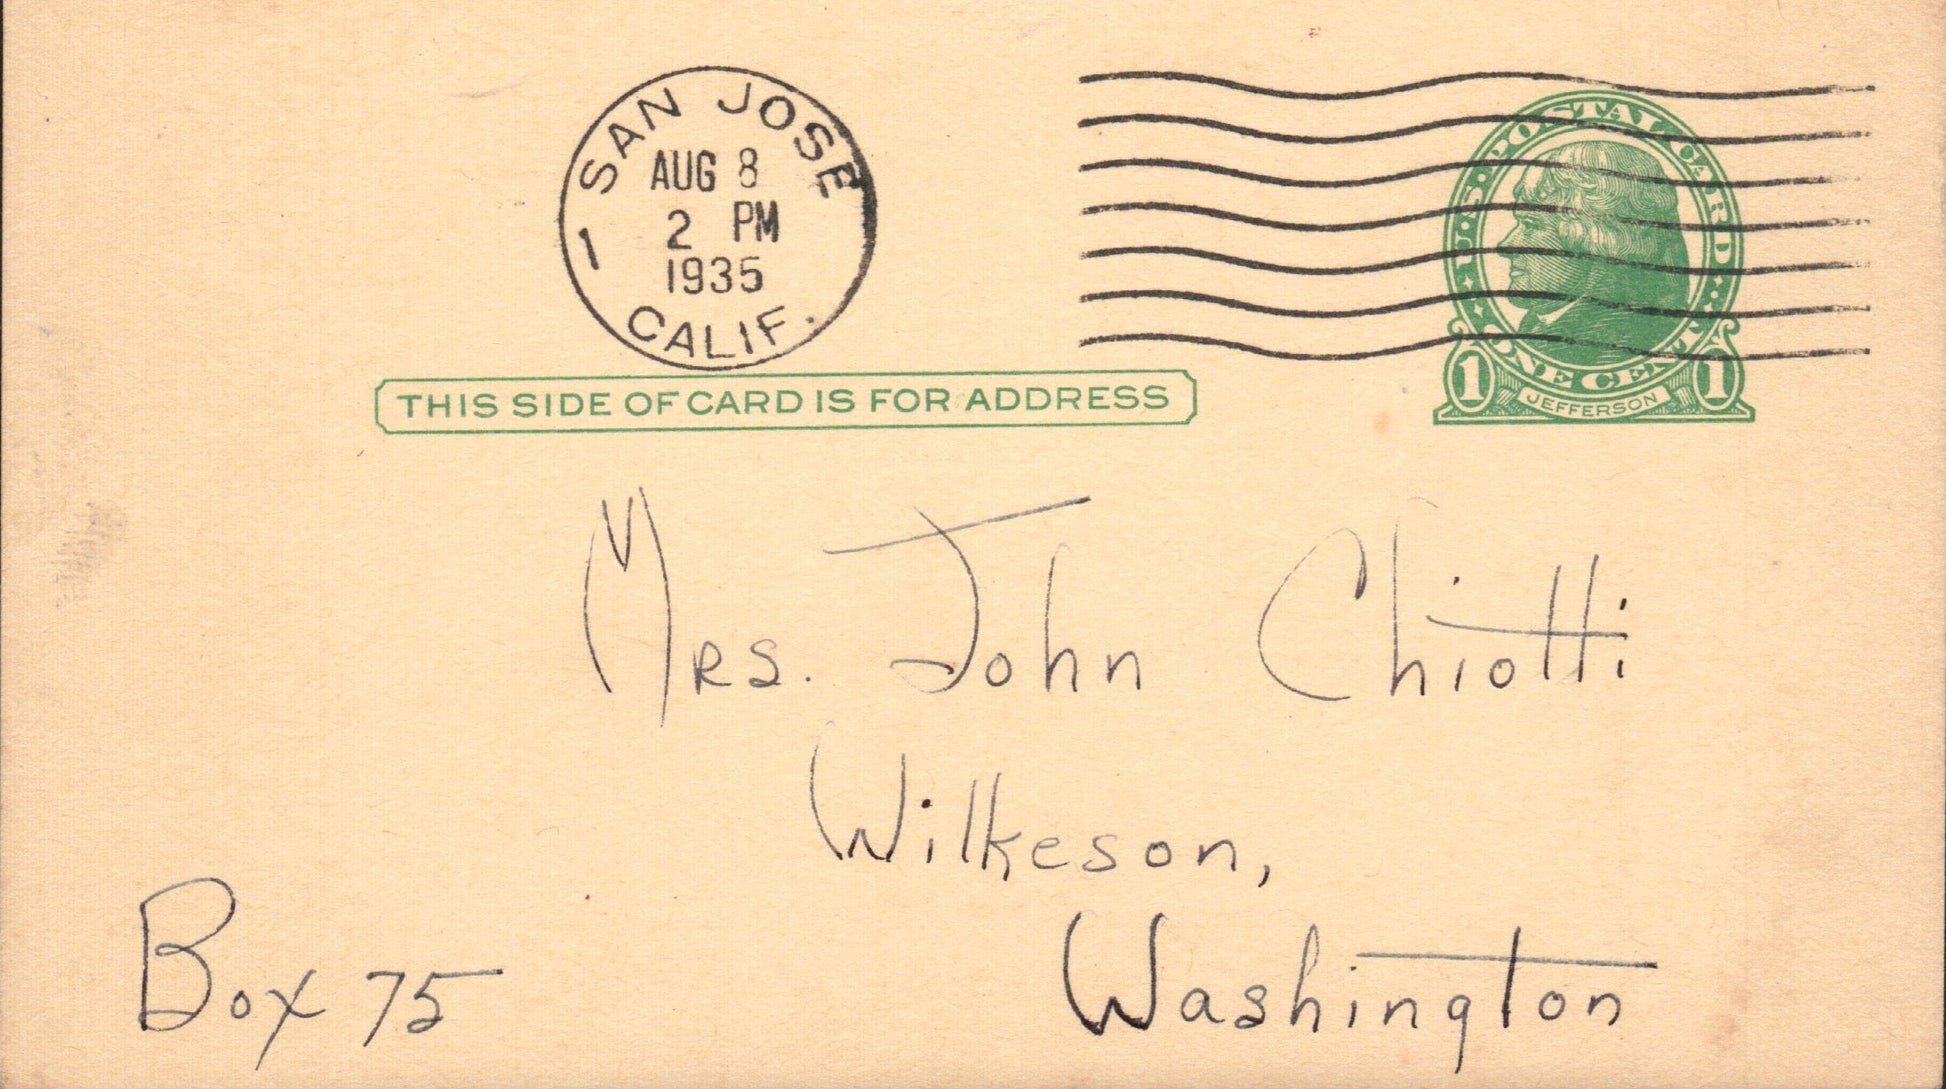 SAN JOSE
AUG 8
2 PM
1935
1
CALIF.
U.S. POSTAL CARD
ONE CENT
1 1
JEFFERSON
THIS SIDE OF CARD IS FOR ADDRESS
Mrs. John Chiotti
Wilkeson,
Washington
Box 75